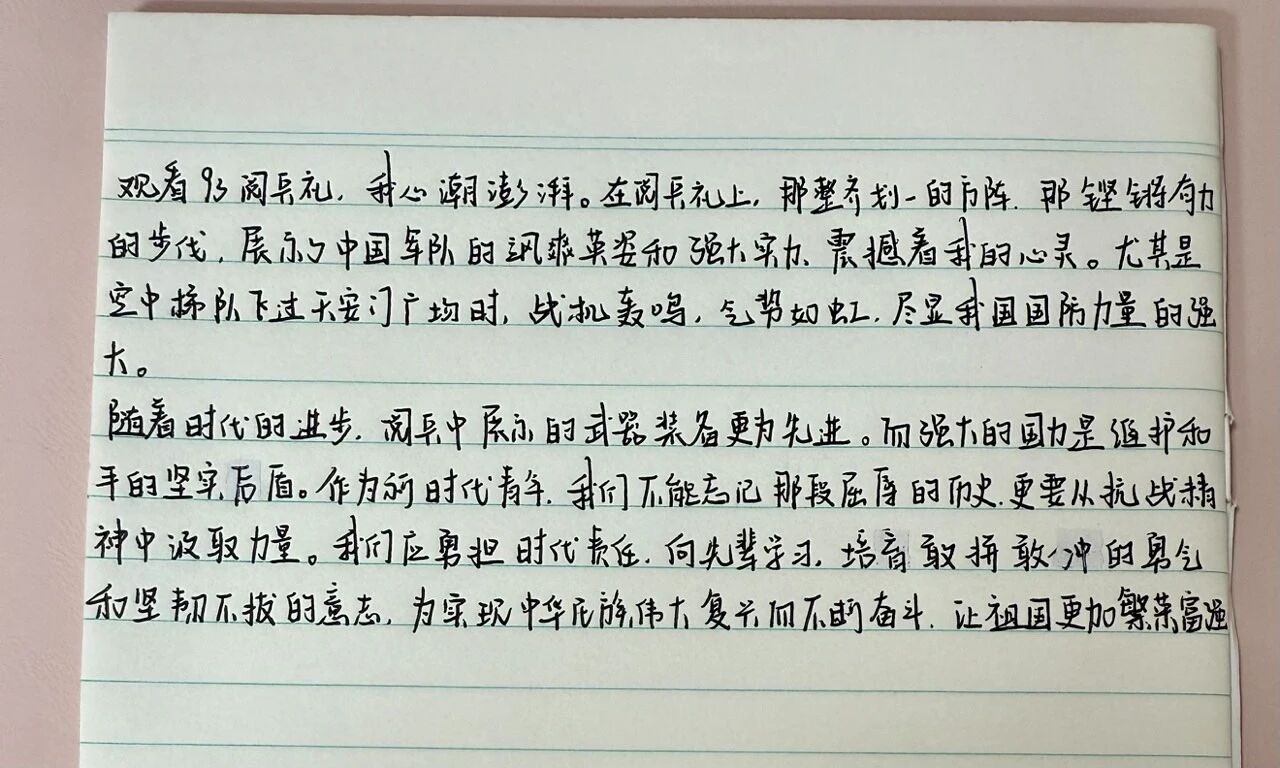 观看93阅兵礼，我心潮澎湃。在阅兵礼上，那整齐划一的方阵，那铿锵有力
的步伐，展示了中国军队的飒爽英姿和强大实力、震撼着我的心灵。尤其是
空中梯队飞过天安门广场时，战机轰鸣，气势如虹，尽显我国国防力量的强
大。
随着时代的进步，阅兵中展示的武器装备更为先进。而强大的国力是维护和
平的坚实后盾。作为新时代青年，我们不能忘记那段屈辱的历史，更要从抗战精
神中汲取力量。我们应勇担时代责任，向先辈学习，培育敢拼敢冲的勇气
和坚韧不拔的意志，为实现中华民族伟大复兴而不断奋斗，让祖国更加繁荣富强